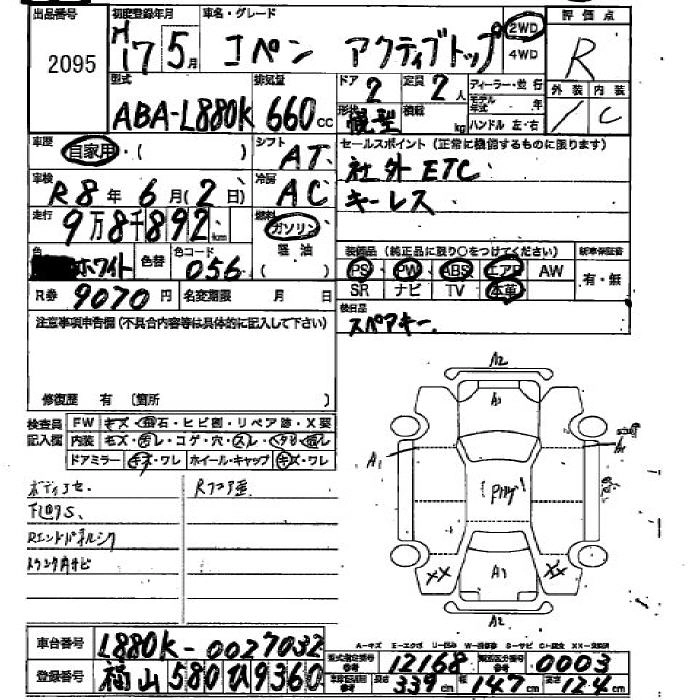 出品番号 初度登録年月 車名・グレード 2WD 評価点
2095 H17 5月 コペン アクティブトップ 4WD R
型式 排気量 ドア 定員 ディーラー・並行 外装 内装
ABA-L880K 660cc 2 2人 モデル年式 年 / C
形状 積載 kg ハンドル 左・右
車歴 自家用・( ) シフト AT セールスポイント (正常に機能するものに限ります)
車検 R8年 6月(2日) 冷房 AC 社外 ETC
キーレス
走行 9万8千892km 燃料 ガソリン
軽油
( )
色 ホワイト 色替 色コード 056
装備品 (純正品に限り○をつけてください) 新車保証書
PS PW ABS エアB AW 有・無
SR ナビ TV 本革
R券 9070円 名変期限 月 日
後日品
スペアキー.
注意事項申告欄(不具合内容等は具体的に記入して下さい)
修復歴 有 〔箇所 〕
検査員記入欄 FW キズ・飛石・ヒビ割・リペア跡・X要
内装
ドアミラー キズ・ワレ ホイール・キャップ キズ・ワレ
A2
A1
A1
A1
XX XX
A2
A-キズ E-エクボ
車台番号 L880K-0027032
型式指定番号 12168 類別区分番号 0003
登録番号 福山 580 ひ 9360
長さ 339cm 幅 147cm 高さ 124cm